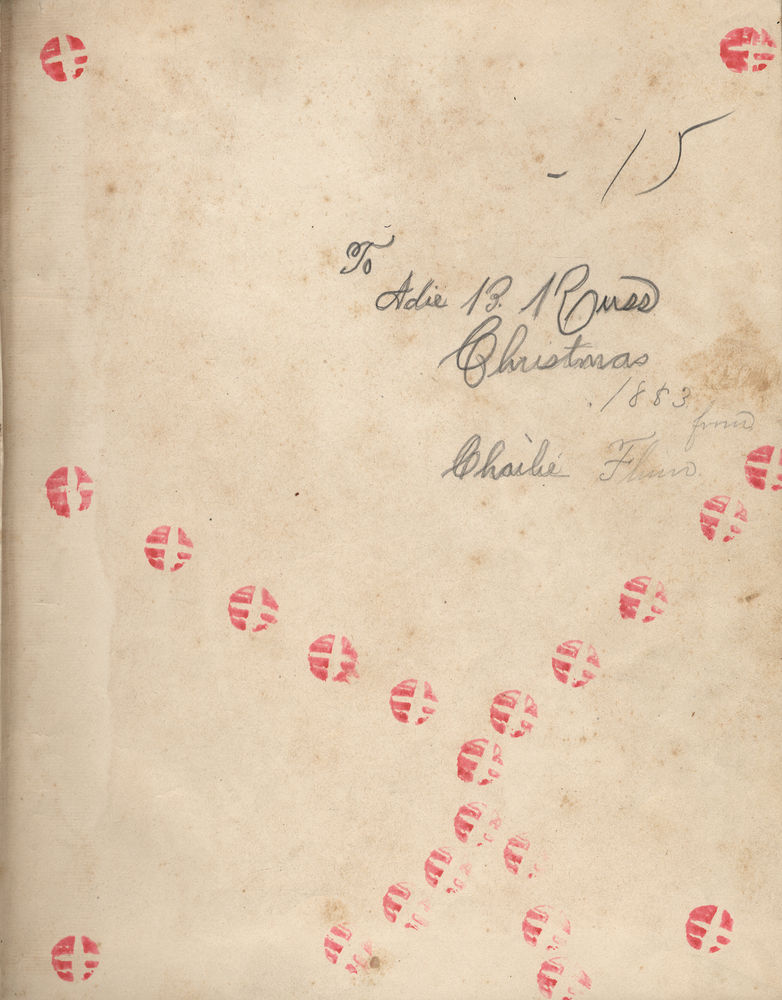 - 15
To
Adie B. Russ
Christmas
1883
from
Charlie